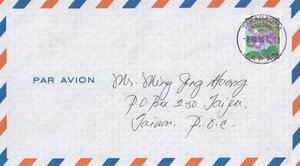 PAR AVION
Mr. Ming Jeng Huang
P O Box 250 Taipei,
Taiwan R.O.C.
JAPAN